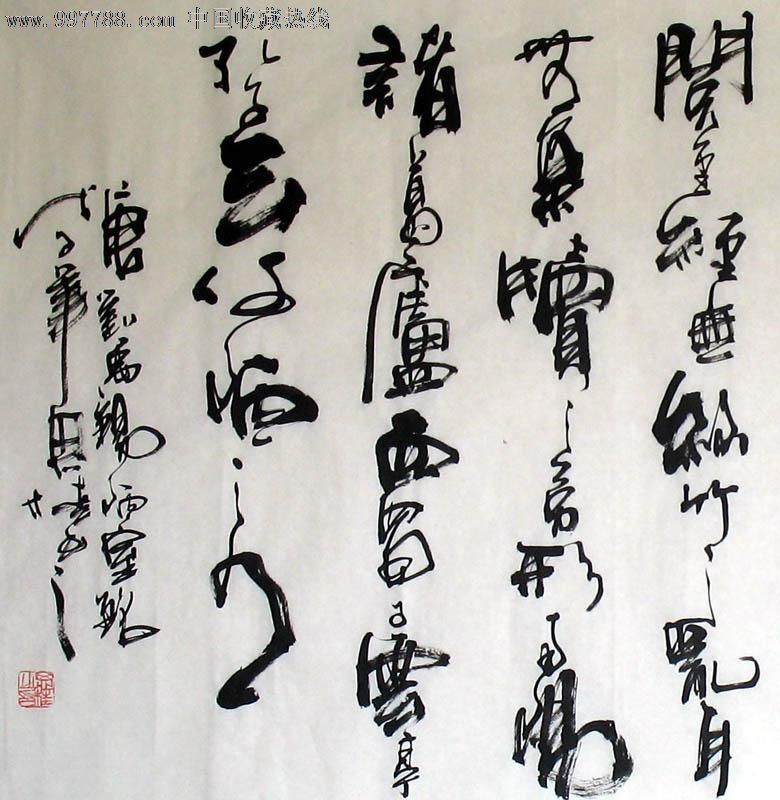 www.997788.com 中国收藏热线
閱金經無絲竹之亂耳
無案牘之勞形南陽
諸葛廬西蜀子雲亭
孔子云何陋之有
唐劉禹錫陋室銘